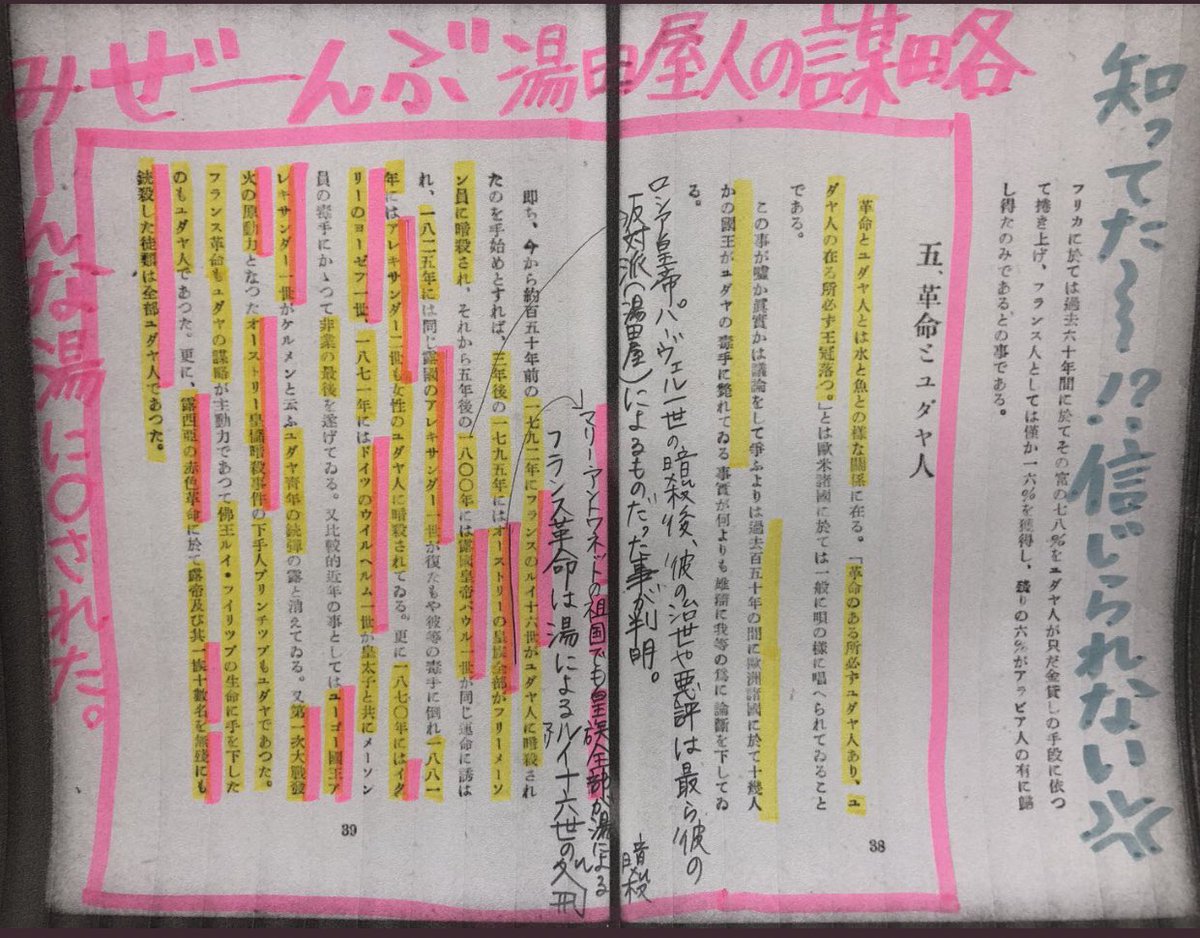 知ってた〜〜!?!信じられない
みーんな湯に〇された。
みぜーんぶ湯田屋人の謀略
フリカに於ては過去六十年間に於てその富の七八%をユダヤ人が只だ金貸しの手段に依つ
て捲き上げ、フランス人としては僅か一六%を獲得し、残りの六%がアラビア人の有に歸
し得たのみであるとの事である。
五、革命とユダヤ人
革命とユダヤ人とは水と魚との樣な關係に在る。「革命のある所必ずユダヤ人あり、ユ
ダヤ人の在る所必ず王冠落つ。」とは歐米諸國に於ては一般に唄の樣に唱へられてゐること
である。
この事が嘘か眞實かは議論をして爭ふよりは過去百五十年の間に歐洲諸國に於て十幾人
かの國王がユダヤの毒手に斃れてゐる事實が何よりも雄辯に我等の爲に論斷を下してゐ
る。
ロシア皇帝。パーヴェル一世の暗殺後、彼の治世や悪評は最ら彼の
反対派(湯田屋)によるものだった事が判明。
38
マリーアントワネットの祖国でも皇族全部が湯による
暗殺
フランス革命は湯によるルイ十六世の
即ち、今から約百五十年前の一七九二年にフランスのルイ十六世がユダヤ人に暗殺され
たのを手始めとすれば、三年後の一七九五年にはオーストリーの皇族全部がフリーメーソ
ン員に暗殺され、それから五年後の一八〇〇年には露國皇帝パウル一世が同じ運命に誘は
れ、一八二五年には同じ露國のアレキサンダー一世が復たもや彼等の毒手に倒れ一八八一
年にはアレキサンダー二世も女性のユダヤ人に暗殺されてゐる。更に一八七〇年にはイタ
リーのヨーゼフ一世、一八七一年にはドイツのウイルヘルム一世が皇太子と共にメーソン
員の毒手にかゝつて非業の最後を遂げてゐる。又比較的近年の事としてはユーゴー國王ア
レキサンダー一世がケルメンと云ふユダヤ青年の銃彈の露と消えてゐる。又第一次大戰發
火の原動力となつたオーストリー皇儲暗殺事件の下手人プリンチツプもユダヤであつた。
フランス革命もユダヤの謀略が主動力であつて佛王ルイ・フイリツプの生命に手を下した
のもユダヤ人であつた。更に、露西亞の赤色革命に於て露帝及び其一族十數名を無殘にも
銃殺した徒類は全部ユダヤ人であつた。
39